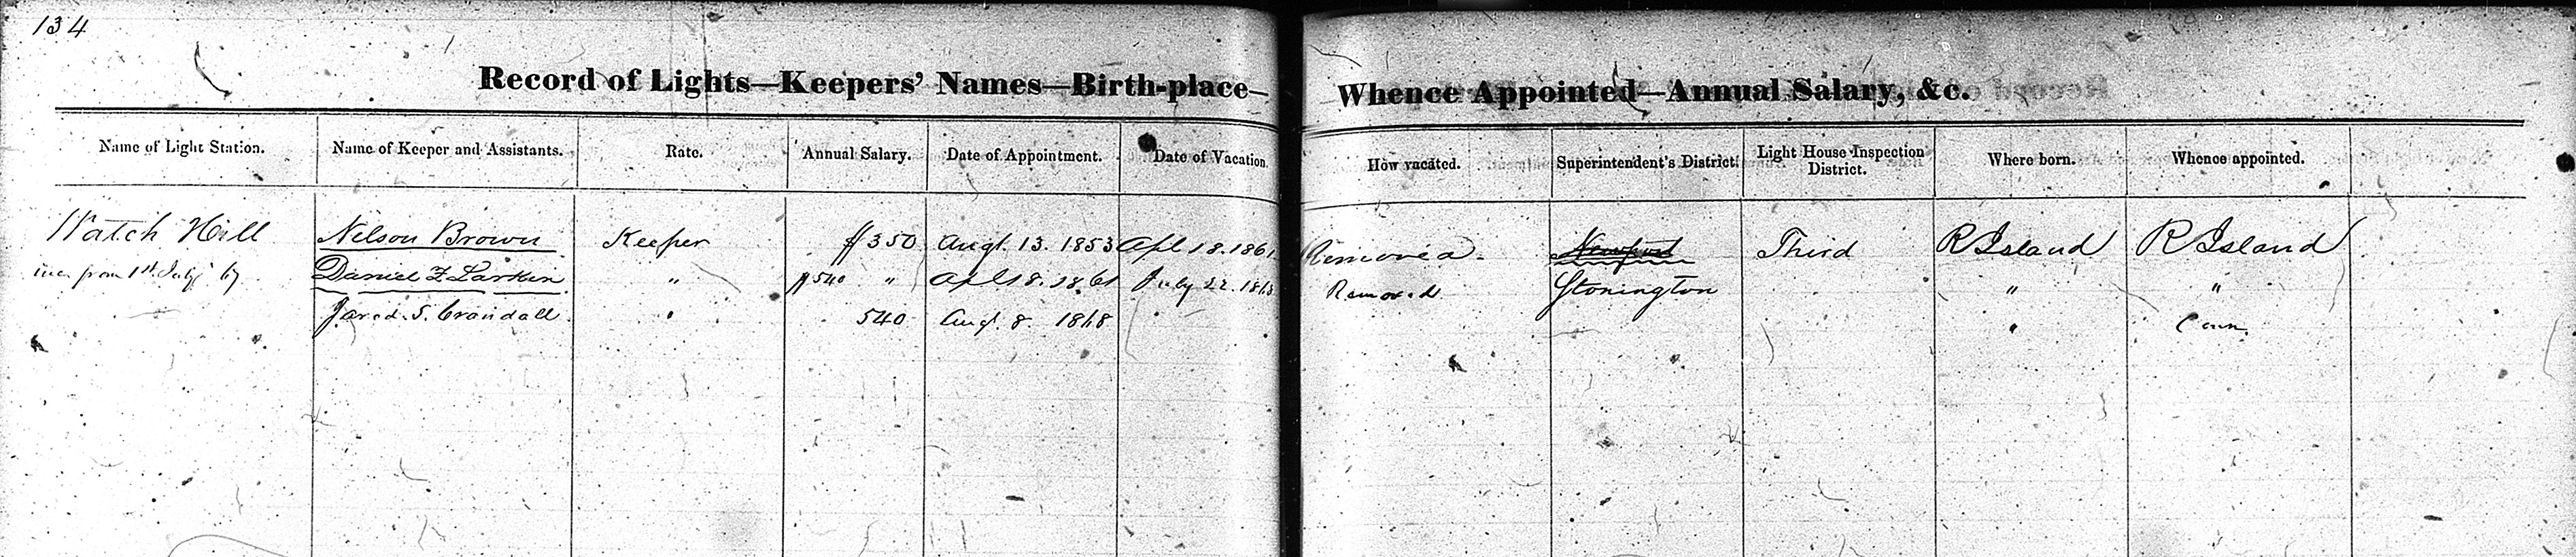 134
Record of Lights—Keepers' Names—Birth-place— Whence Appointed—Annual Salary, &c.
Name of Light Station. Name of Keeper and Assistants. Rate. Annual Salary. Date of Appointment. Date of Vacation. How vacated. Superintendent's District. Light House Inspection District. Where born. Whence appointed.
Watch Hill Nelson Brown Keeper $350 Augt. 13. 1853 Apl 18. 1861. Removed. Newport Third R Island R Island
inc. from 1st July Daniel F. Larkin " $540 " Apl 18. 1861 July 22. 1868 Removed. Stonington " "
Jared. S. Crandall. " 540 Augt. 8. 1868 " Conn.